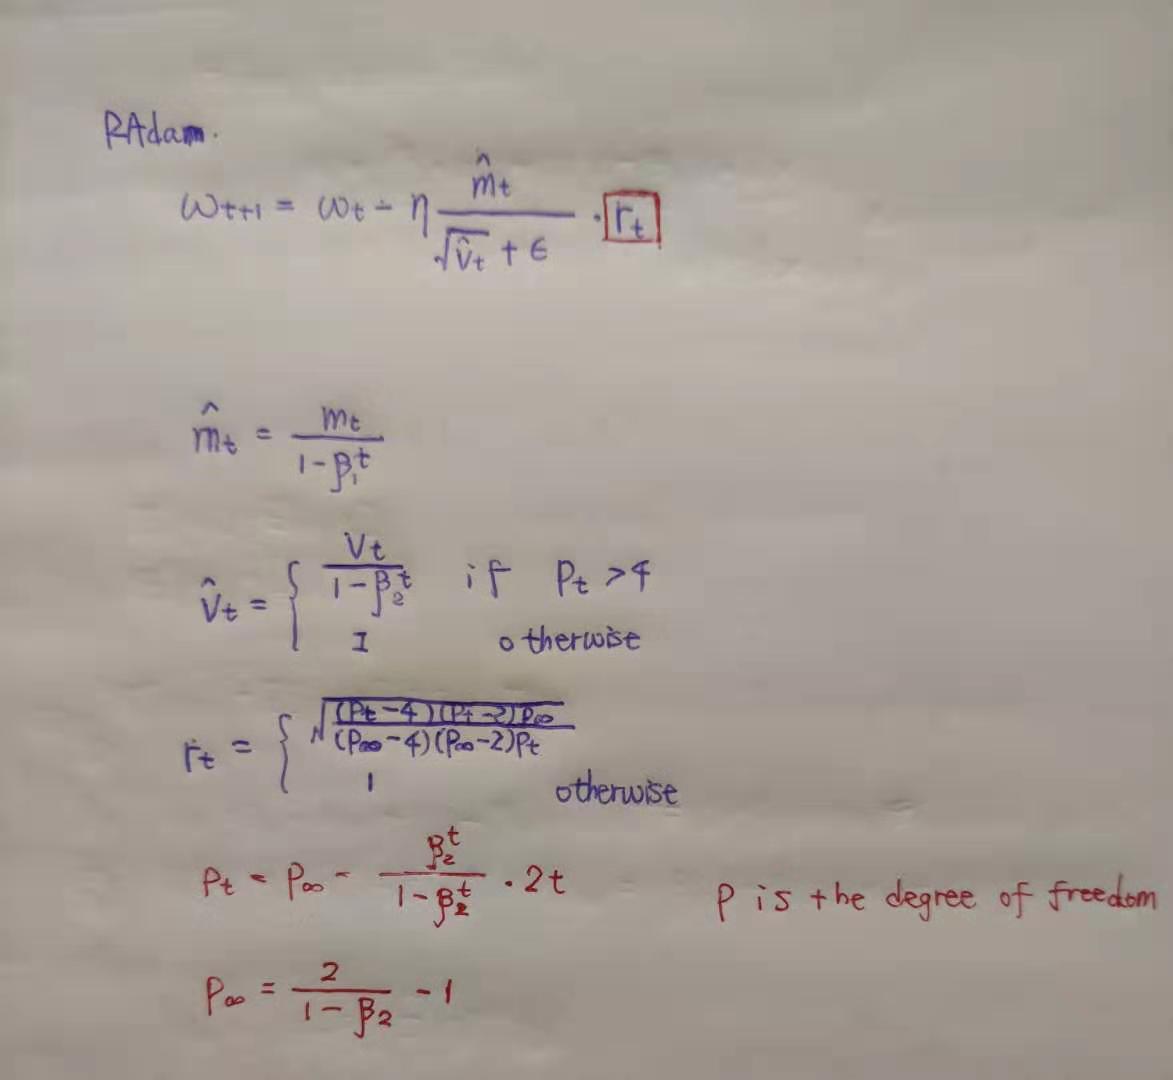 RAdam.
ω_{t+1} = ω_t - η \frac{\hat{m}_t}{\sqrt{\hat{v}_t} + ϵ} · r_t
\hat{m}_t = \frac{m_t}{1 - β_1^t}
\hat{v}_t = { \frac{v_t}{1 - β_2^t} if ρ_t > 4
I otherwise
r_t = { \sqrt{\frac{(ρ_t - 4)(ρ_t - 2)ρ_∞}{(ρ_∞ - 4)(ρ_∞ - 2)ρ_t}}
1 otherwise
ρ_t = ρ_∞ - \frac{β_2^t}{1 - β_2^t} · 2t
ρ is the degree of freedom
ρ_∞ = \frac{2}{1 - β_2} - 1